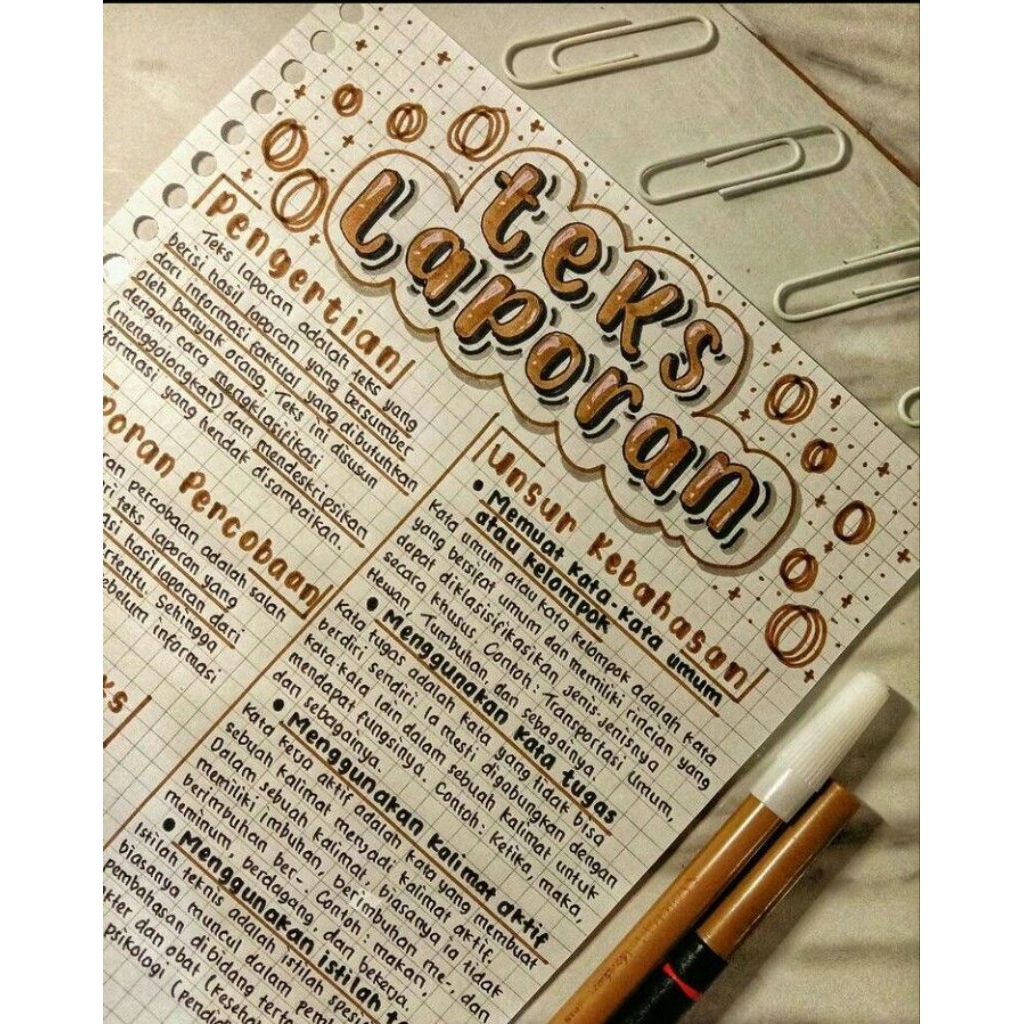 teks
laporan
Pengertian
Teks laporan adalah teks yang
berisi hasil laporan yang bersumber
dari informasi faktual yang dibutuhkan
oleh banyak orang. Teks ini disusun
dengan cara mengklasifikasi
(menggolongkan) dan mendeskripsikan
formasi yang hendak disampaikan.
poran Percobaan
ran percobaan adalah salah
ri teks laporan yang
asi hasil laporan dari
ertentu. Sehingga
ebelum informasi
ks
Unsur Kebahasan
• Memuat kata-kata umum
atau kelompok
Kata umum atau kata kelompok adalah kata
yang bersifat umum dan memiliki rincian yang
dapat diklasisifikasikan jenis-jenisnya
secara khusus. Contoh: Transportasi Umum,
Hewan, Tumbuhan, dan sebagainya.
• Menggunakan kata tugas
Kata tugas adalah kata yang tidak bisa
berdiri sendiri. Ia mesti digabungkan dengan
kata kara lain dalam sebuah kalimat untuk
mendapat fungsinya. Contoh: Ketika, maka,
dan sebagainya.
• Menggunakan kalimat aktif
Kata kerja aktif adalah kata yang membuat
sebuah kalimat menjadi kalimat aktif.
Dalam sebuah kalimat, biasanya ia tidak
memiliki imbuhan, berimbuhan me-, dan
berimbuhan ber-. Contoh: makan,
meminum, berdagang, dan bekerja.
• Menggunakan istilah t
Istilah teknis adalah istilah spesi
biasanya muncul dalam pemb
pembahasan dibidang terte
kter dan obat (keseha
psikologi (pendid